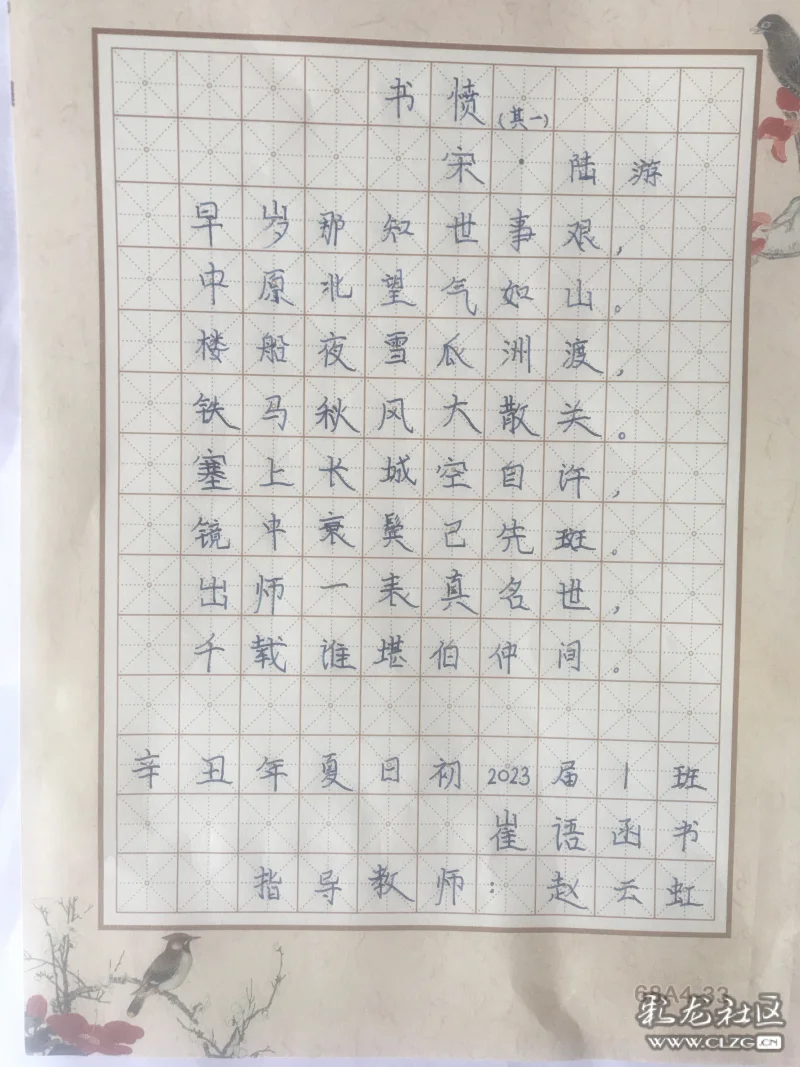 书愤(其一)
宋·陆游
早岁那知世事艰,
中原北望气如山。
楼船夜雪瓜洲渡,
铁马秋风大散关。
塞上长城空自许,
镜中衰鬓已先斑。
出师一表真名世,
千载谁堪伯仲间。
辛丑年夏日初2023届1班
崔语函书
指导教师:赵云虹
68A4-33
乳龙社区
WWW.CLZG.CN